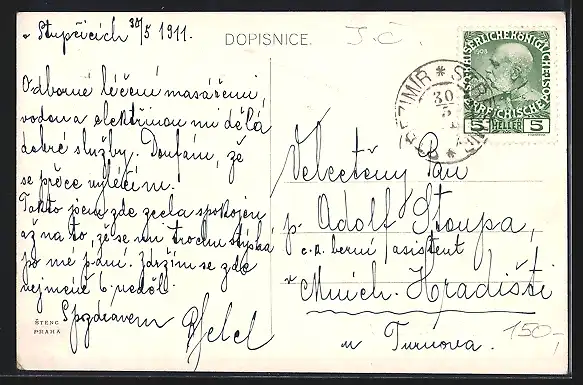 v Stupčicích 30/5 1911.
DOPISNICE.
J. Č.
Odborné léčení masážemi,
vodou a elektřinou mi dělá
dobré služby. Doufám, že
se přece vyléčím.
Takto jsem zde zcela spokojen
až na to, že se mi trochu stýská
po mé paní. Zdržím se zde
nejméně 6 neděl.
S pozdravem
ŠTENC
PRAHA
1908
KAISERLICHE KÖNIGLICHE
ÖSTERREICHISCHE POST
5 HELLER 5
30
Velectěný Pan
p. Adolf Stoupa,
c.k. berní asistent
v Mnich. Hradišti
u Turnova.
150,-